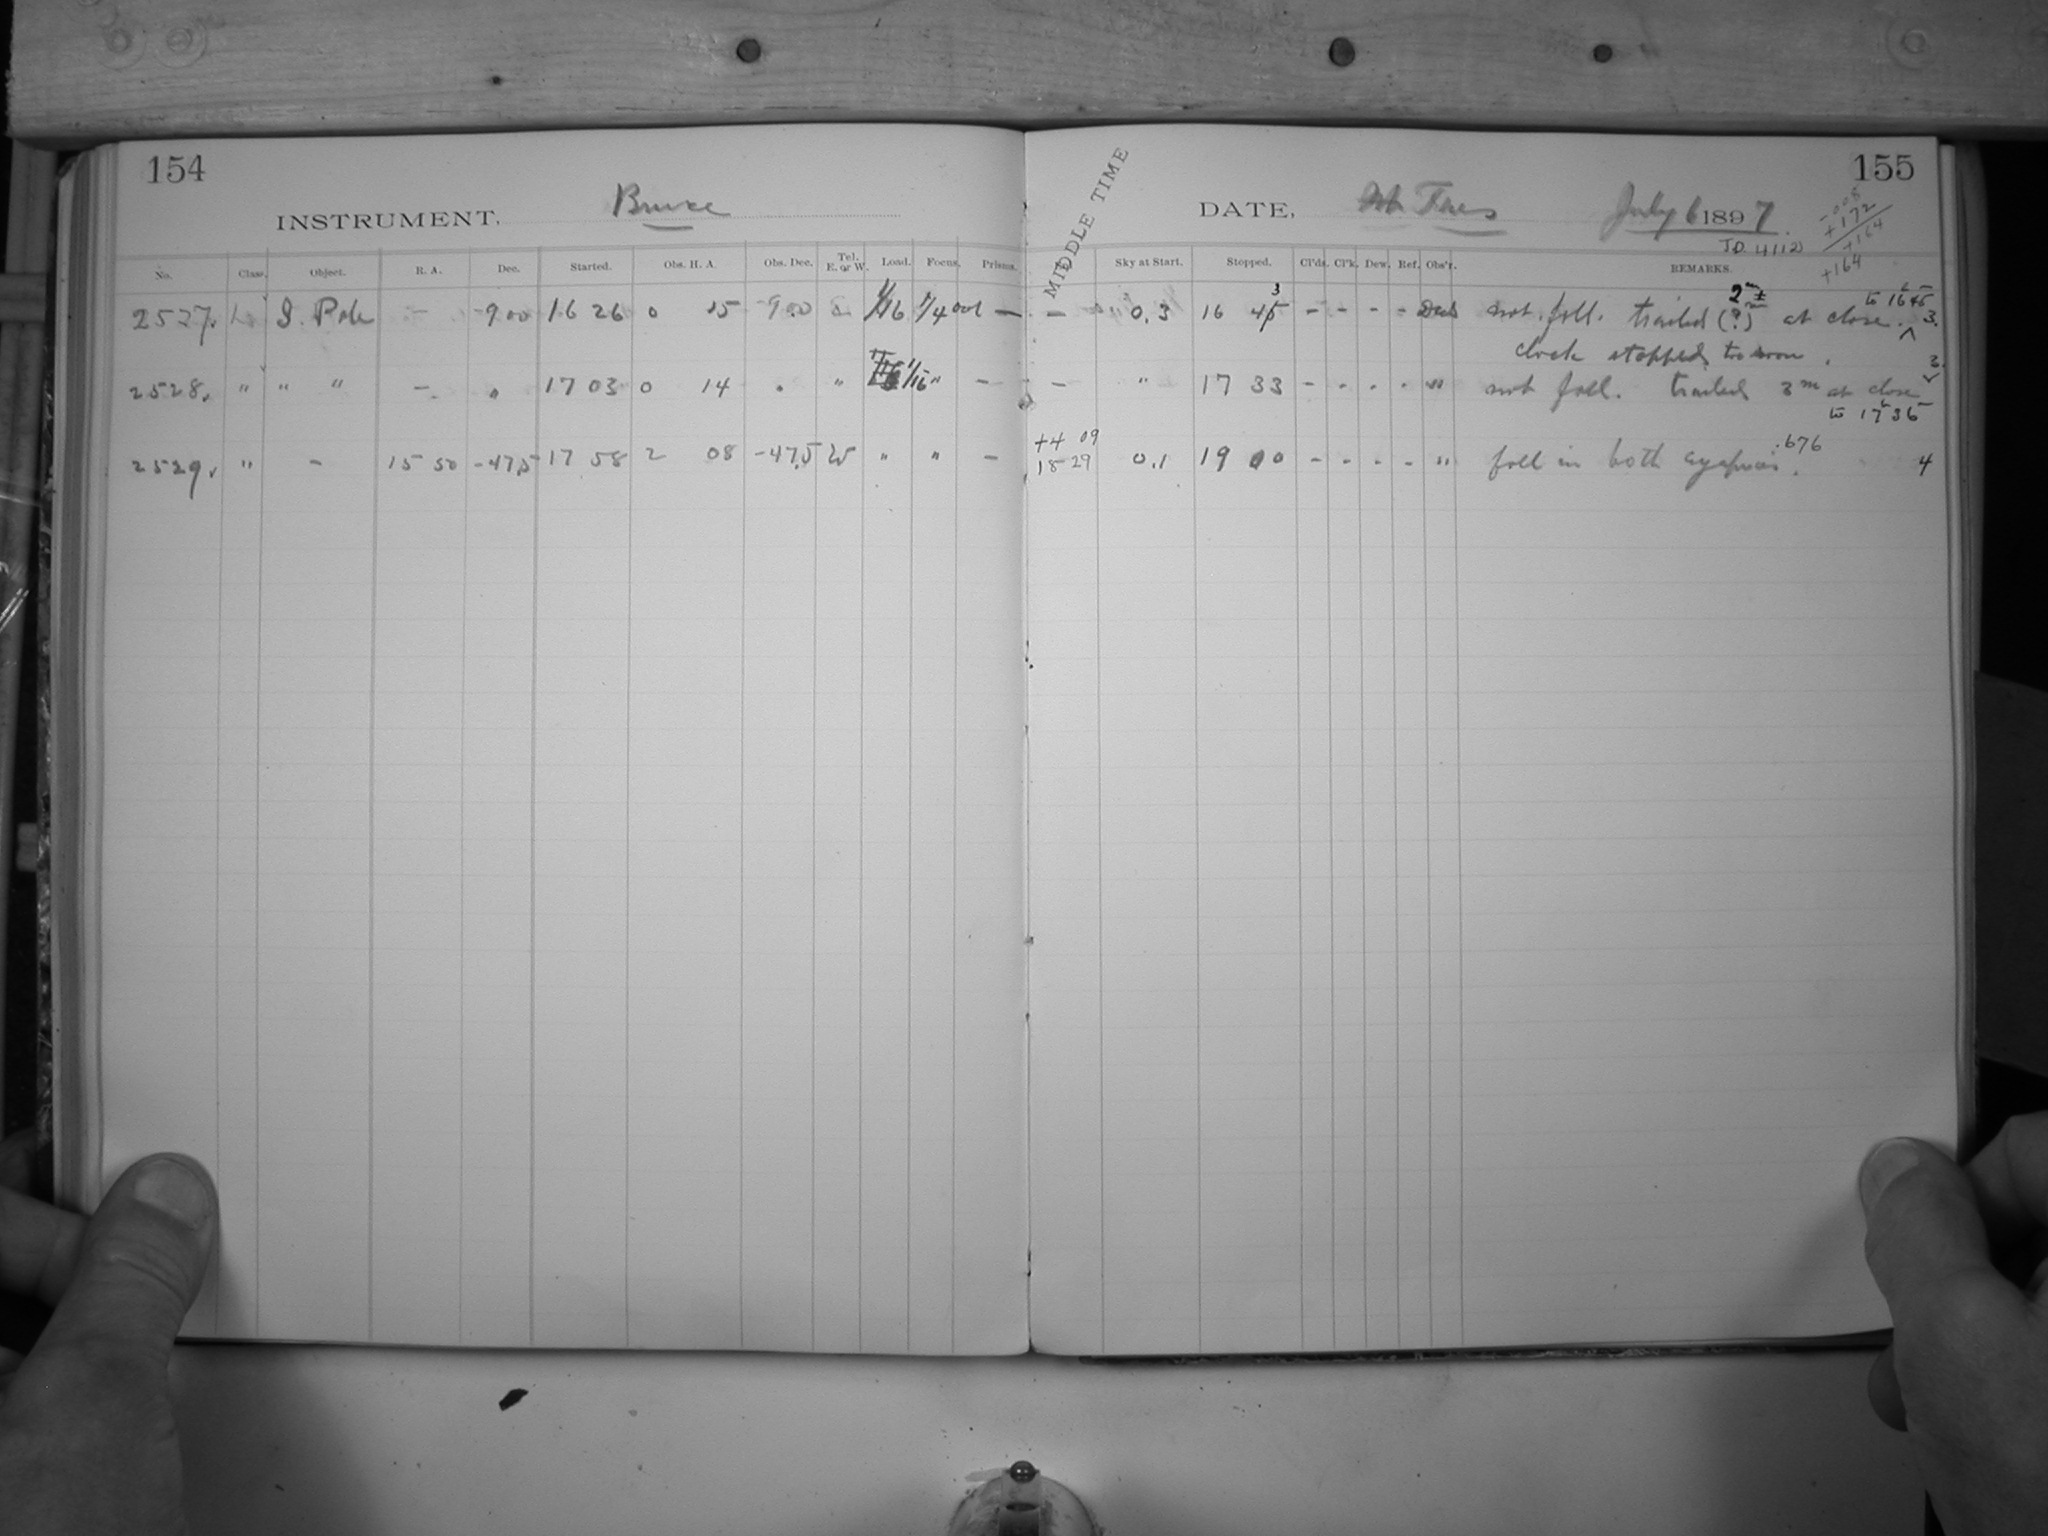 154
INSTRUMENT, Bruce
No. Class. Object. R. A. Dec. Started. Obs. H. A. Obs. Dec. Tel. E. or W. Load. Focus. Prisms.
2527. L S. Pole - -90 0 16 26 0 15 -90.0 1/16 1/4 out —
2528. " " " - " 17 03 0 14 . " 1/16 " -
2529. " - 15 50 -47.5 17 58 2 08 -47.5 W " " -
155
MIDDLE TIME
DATE, Tues July 6 1897
-008
+172
+164
+164
J.D. 4112)
Sky at Start. Stopped. Cl'ds. Cl'k. Dew. Ref. Obs'r. REMARKS.
- 0.3 16 45 3 - - - - not foll. trailed (?) 2m ± at close. to 16 45 3.
clock stopped too soon.
- " 17 33 - - - - " not foll. trailed 3m at close 3.
to 17h 36
+4 09
18 29 0.1 19 00 - - - - " foll in both .676 4